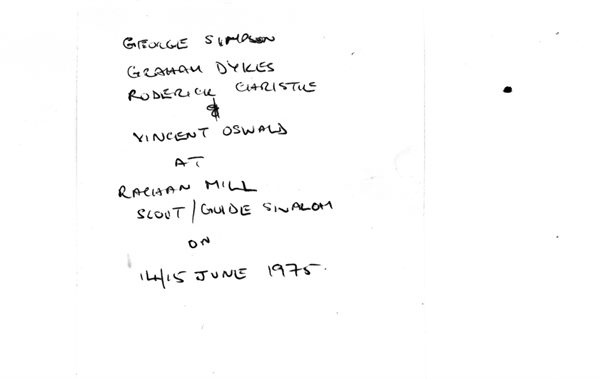 GEORGE SIMPSON
GRAHAM DYKES
RODERICK CHRISTIE
&
VINCENT OSWALD
AT
RACHAN MILL
SCOUT/GUIDE SINALOM
ON
14/15 JUNE 1975.